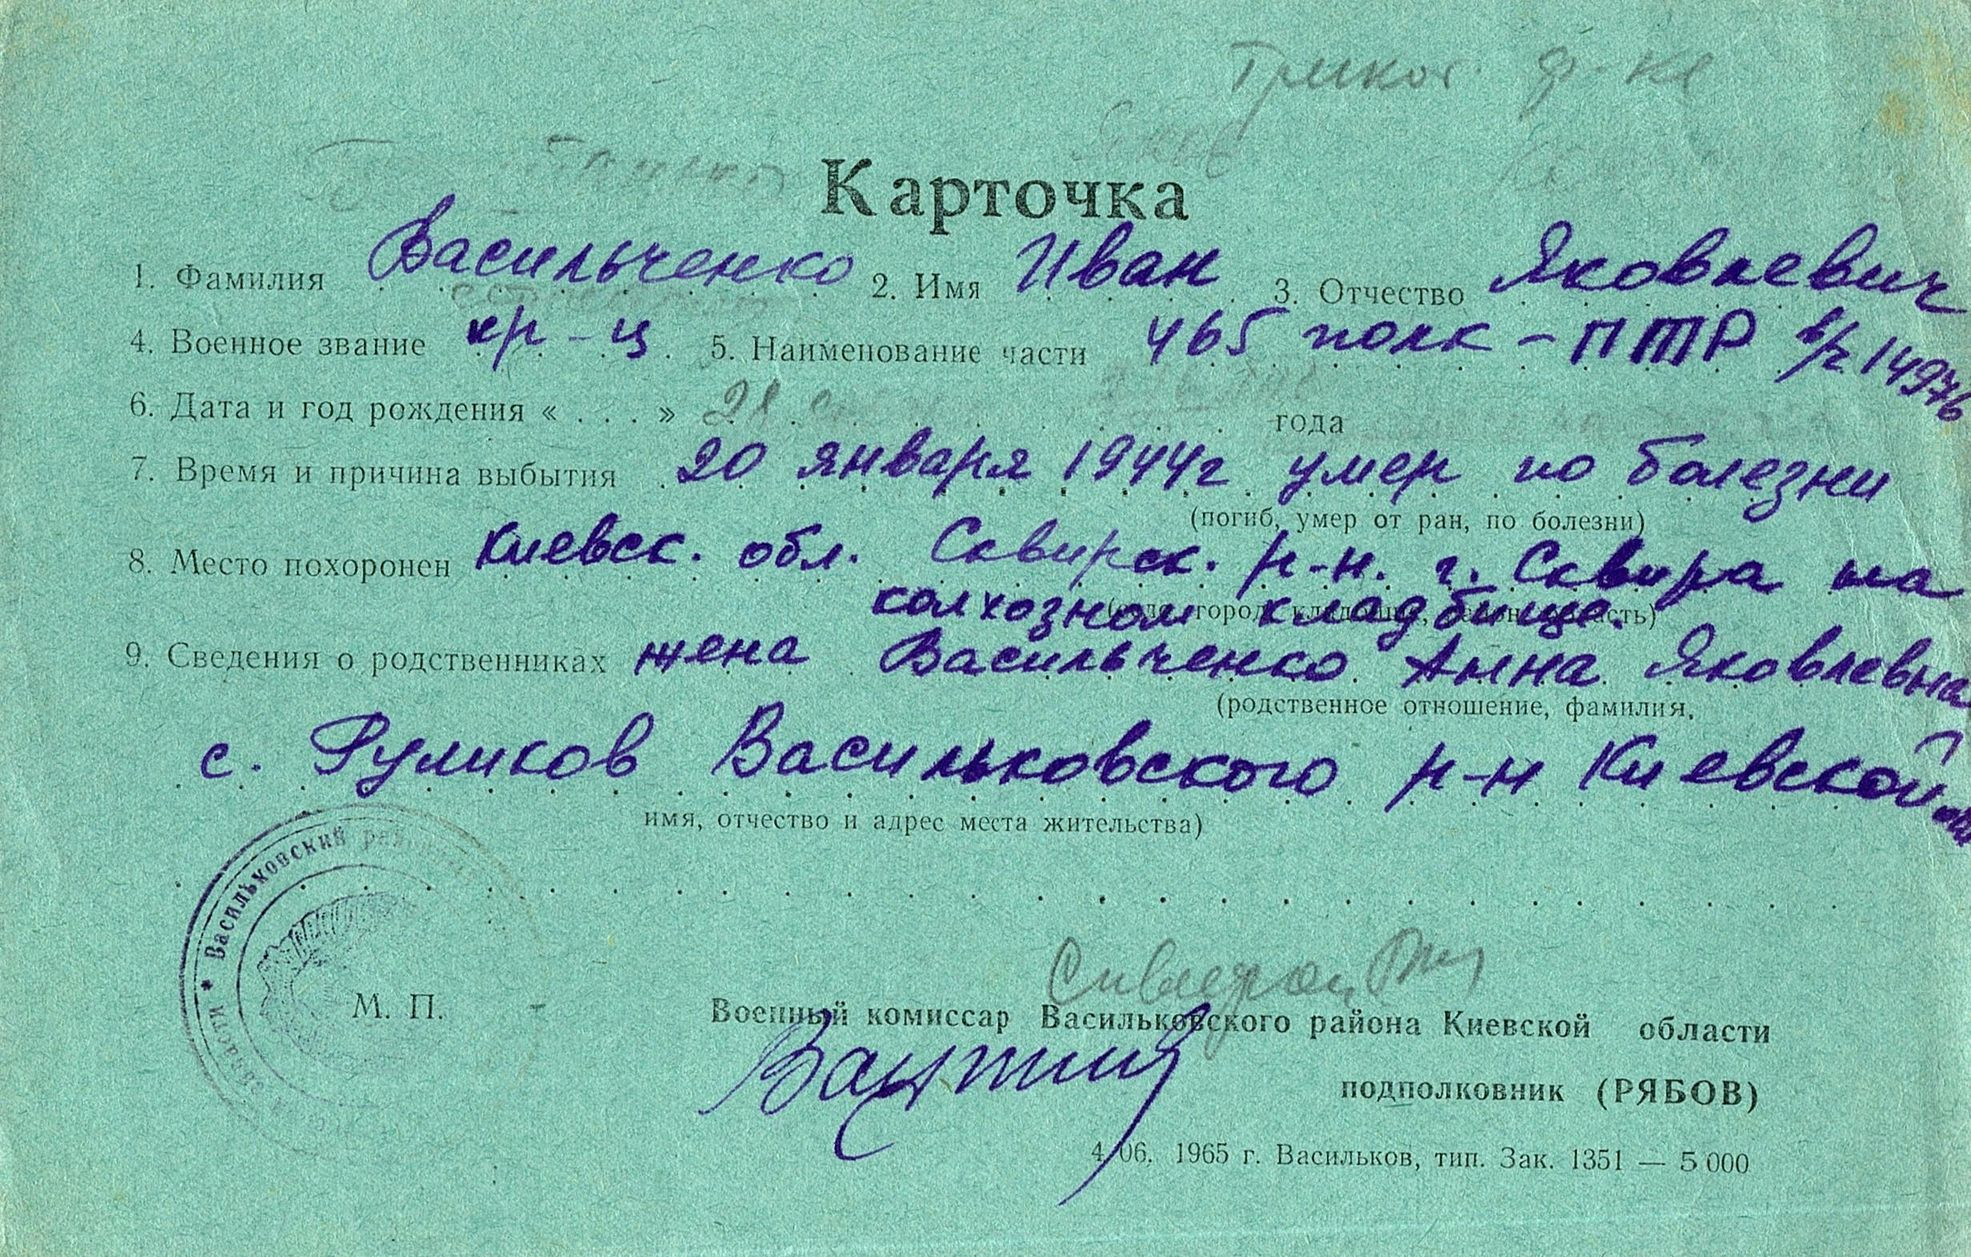 Трикот. ф-ке
Яков
Карточка
1. Фамилия Васильченко 2. Имя Иван 3. Отчество Яковлевич
4. Военное звание кр-ц 5. Наименование части 465 полк - ПТР в/ч 14976
6. Дата и год рождения « . . . » 28 года
7. Время и причина выбытия 20 января 1944г умер по болезни
(погиб, умер от ран, по болезни)
8. Место похоронен Киевск. обл. Сквирск. р-н. г. Сквира на
колхозном кладбище.
9. Сведения о родственниках жена Васильченко Анна Яковлевна
(родственное отношение, фамилия,
с. Руликов Васильковского р-н Киевской обл
имя, отчество и адрес места жительства)
* Васильковский
области
М. П.
Военный комиссар Васильковского района Киевской области
подполковник (РЯБОВ)
4/06. 1965 г. Васильков, тип. Зак. 1351 — 5 000